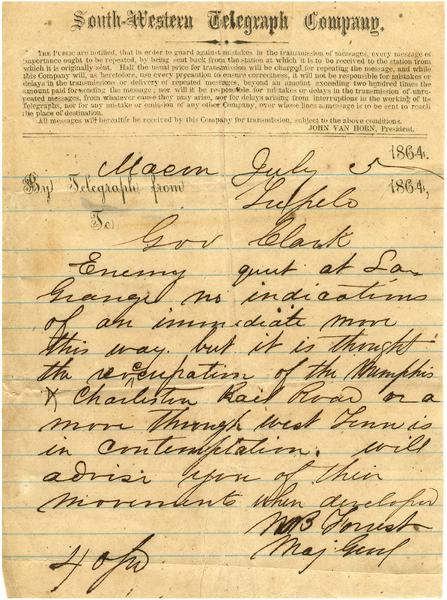 South-Western Telegraph Company.
THE PUBLIC are notified, that in order to guard against mistakes in the transmission of messages, every message of
importance ought to be repeated, by being sent back from the station at which it is to be received to the station from
which it is originally sent. Half the usual price for transmission will be charged for repeating the message, and while
this Company will, as heretofore, use every precaution to ensure correctness, it will not be responsible for mistakes or
delays in the transmission or delivery of repeated messages, beyond an amount exceeding two hundred times the
amount paid for sending the message; nor will it be responsible for mistakes or delays in the transmission of unre-
peated messages, from whatever cause they may arise, nor for delays arising from interruptions in the working of its
Telegraphs, nor for any mistake or omission of any other Company, over whose lines a message is to be sent to reach
the place of destination.
All messages will hereafter be received by this Company for transmission, subject to the above conditions.
JOHN VAN HORN, President.
Macon July 5 1864.
By Telegraph from Tupelo 1864,
To Gov Clark
Enemy quiet at La-
Grange no indications
of an immediate move
this way. but it is thought
the reoccupation of the Memphis
& Charleston Rail Road or a
move through West Tenn is
in contemplation. will
advise you of their
movements when developed
N B Forrest
Maj Genl